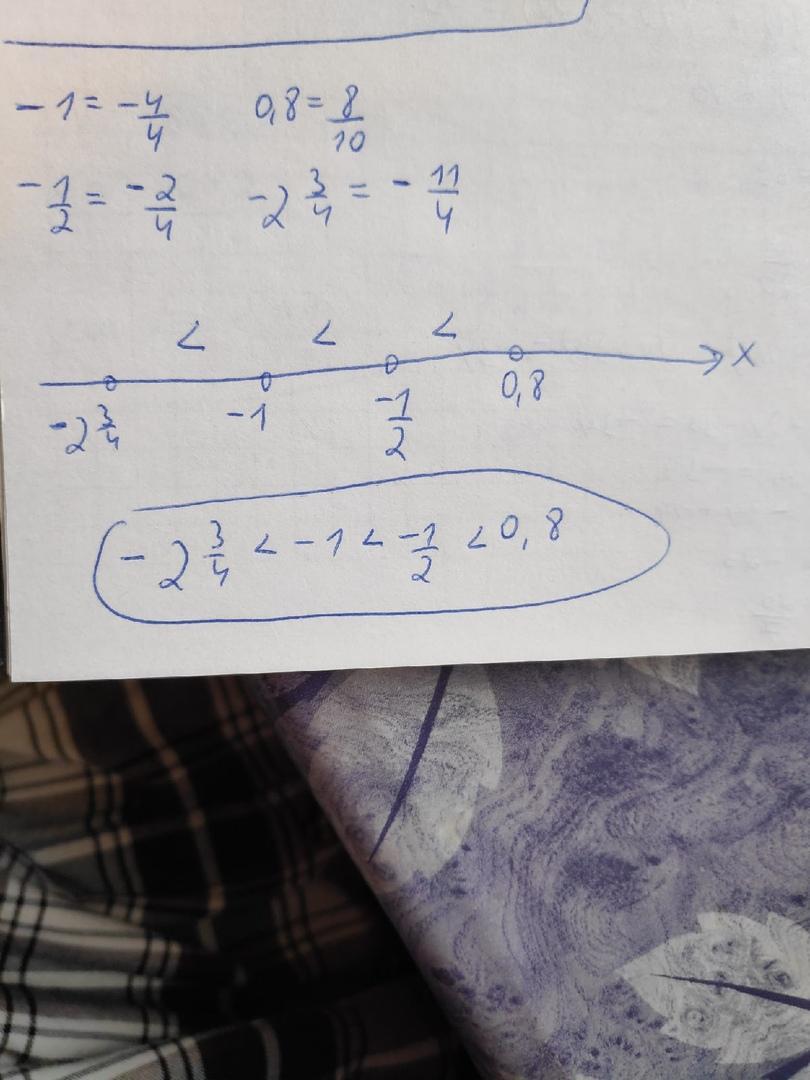 -1 = -4/4 0,8 = 8/10
-1/2 = -2/4 -2 3/4 = - 11/4
< < <
-2 3/4 -1 -1/2 0,8 x
-2 3/4 < -1 < -1/2 < 0,8